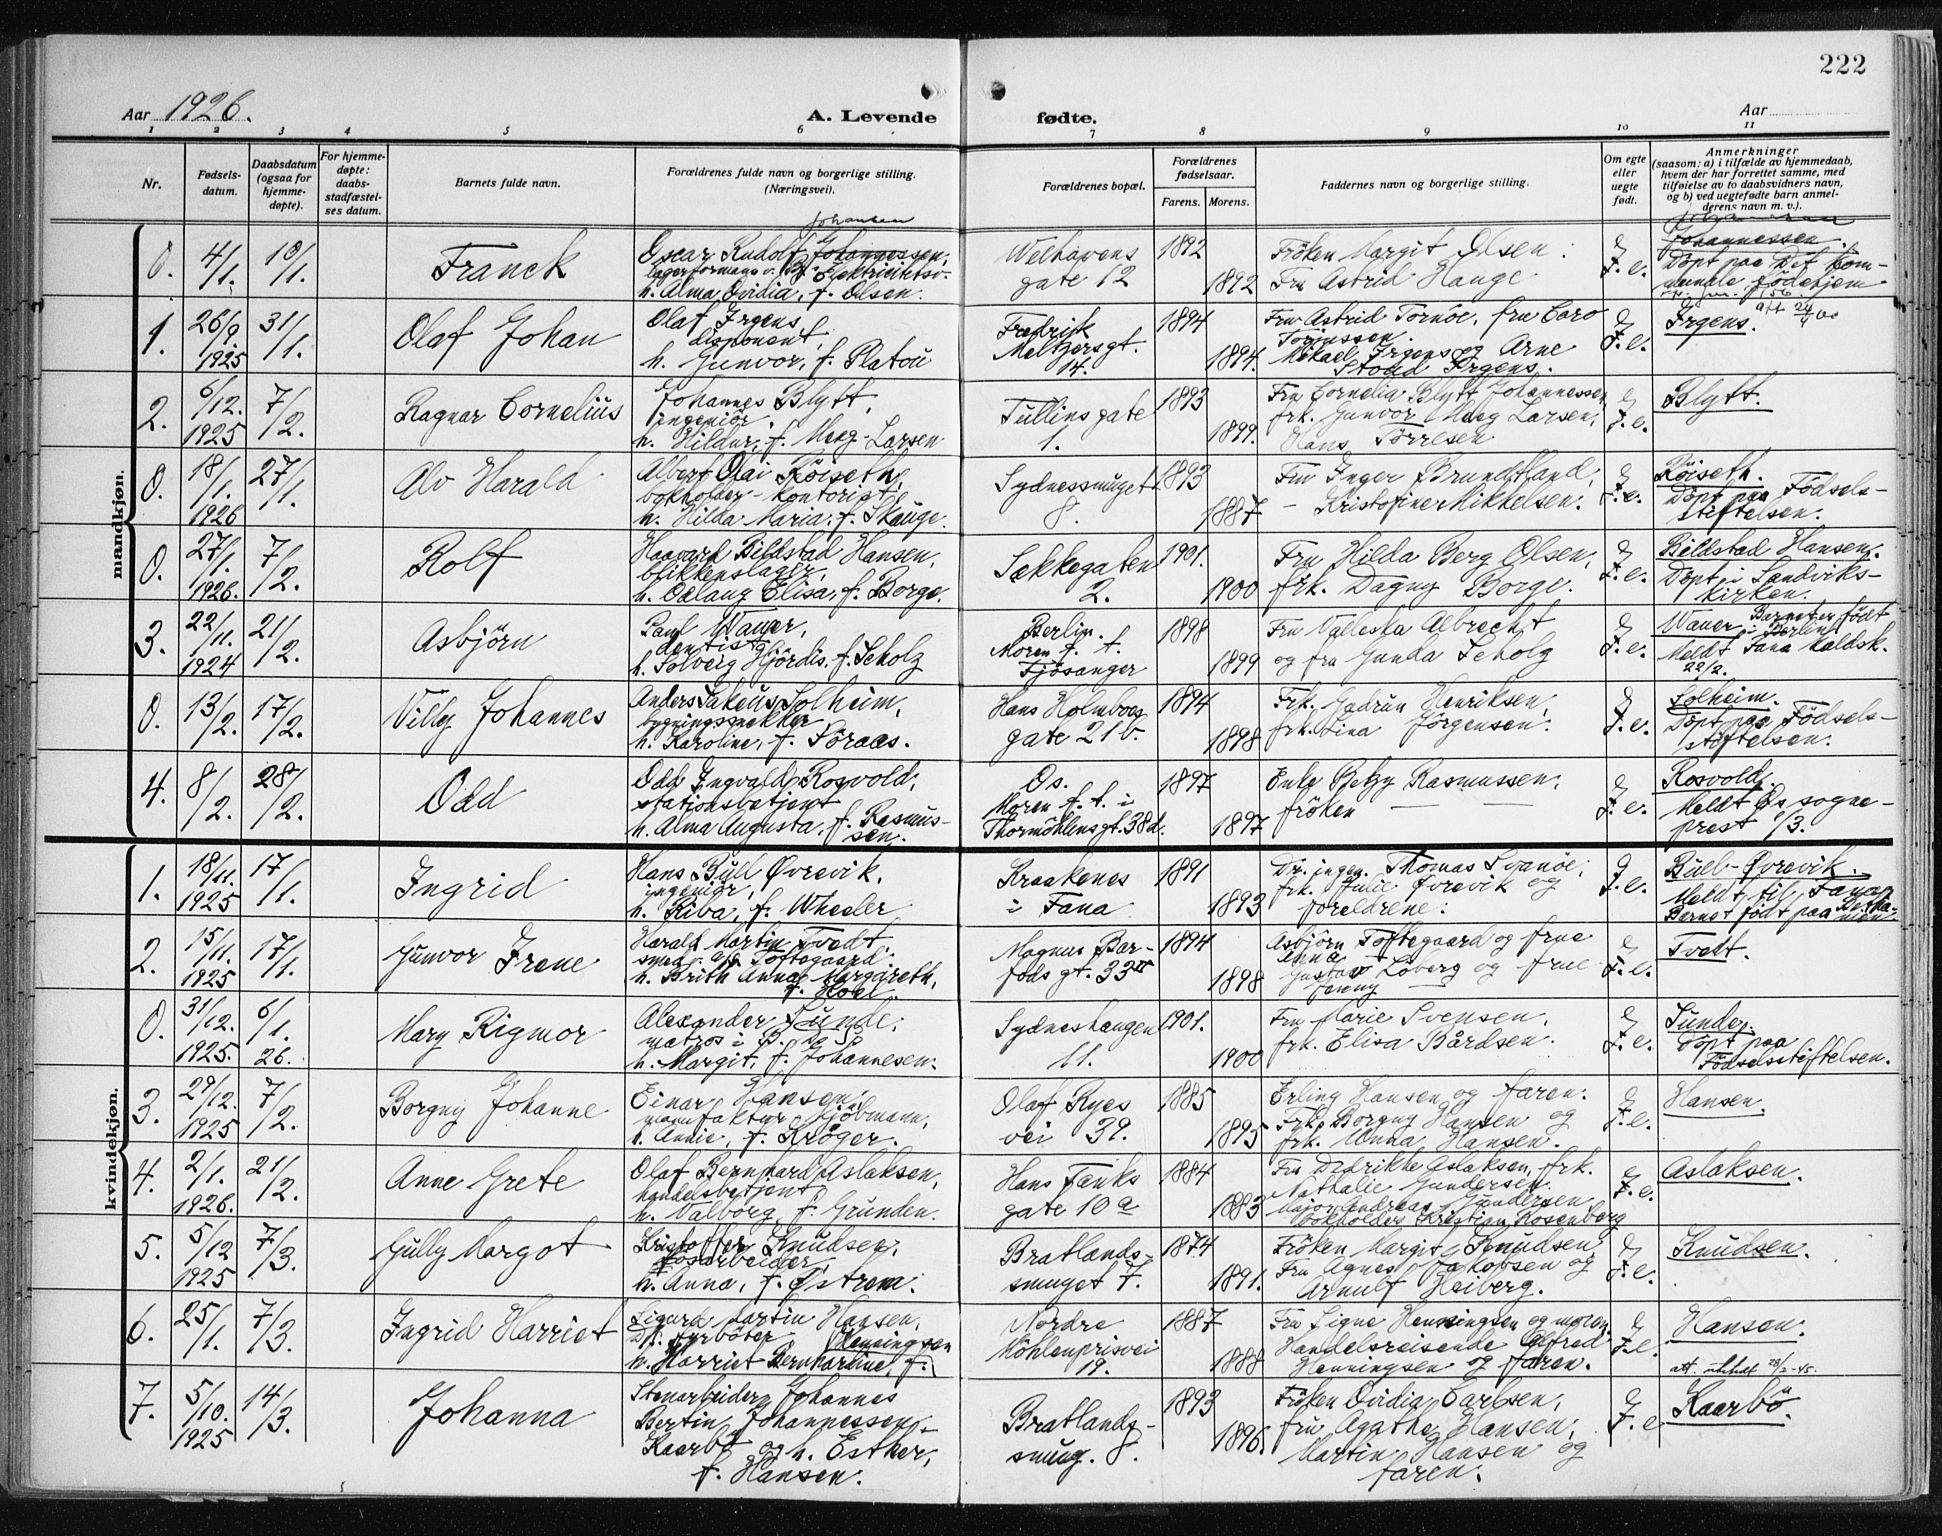 222
Aar 1926.
A. Levende fødte.
Aar
1 2 3 4 5 6 7 8 9 10 11
Nr.
Fødsels-
datum.
Daabsdatum
(ogsaa for
hjemme-
døpte).
For hjemme-
døpte:
daabs-
stadfæstel-
ses datum.
Barnets fulde navn.
Forældrenes fulde navn og borgerlige stilling.
(Næringsvei).
Forældrenes bopæl.
Forældrenes
fødselsaar.
Farens. Morens.
Faddernes navn og borgerlige stilling.
Om egte
eller
uegte
født.
Anmerkninger
(saasom: a) i tilfælde av hjemmedaab,
hvem der har forrettet samme, med
tilføielse av to daabsvidners navn,
og b) ved uegtefødte barn anmel-
derens navn m. v.).
mandkjøn.
0. 4/1. 10/1. Franck
Johansen
Oscar Rudolf Johannessen,
h. Alma Ovidia, f. Olsen.
Welhavens
gate 12
1892 1892
Fröken Margit Olsen.
Fru Astrid Hauge
E
F. e.
Johannessen.
Döpt paa Det kom-
munale födehjem
1. 26/9. 1925 31/1. Olaf Johan
Olaf Irgens,
disponent,
h. Gunvor, f. Platou
Fredrik
Meltzersgt.
14.
1894 1894.
Fru Astrid Tornöe, fru Caro
Mikael Irgens og Arne
Stoud Irgens.
E
F. e.
Irgens.
2. 6/12. 1925 7/2. Ragnar Cornelius
Johannes Blytt,
ingeniör.
h. Hildur, f. Meeg-Larsen
Tullins gate
1.
1893 1899.
Fru Cornelia Blytt Johannessen
frk. Gunvor Meeg Larsen,
Hans Torresen
E
F. e.
Blytt.
0. 18/1. 1926 27/1. Alv Harald
Albert Olai Röiseth,
bokholder-kontorist,
h. Hilda Maria, f. Skauge.
Sydnessmuget
8.
1893 1887
Fru Inger Brundtland,
- Kristofine Mikkelsen.
E
F. e.
Röiseth.
Döpt paa Födsels-
stiftelsen.
0. 27/1. 1926. 7/2. Rolf
Haavard Bildstad Hansen,
blikkenslager,
h. Odlaug Elisa, f. Borge.
Sækkegaten
2.
1901. 1900
Fru Hilda Berg Olsen,
frk. Dagny Borge.
E
F. e.
Bildstad Hansen.
Döpt i Sandviks-
kirken.
3. 22/11. 1924 21/2. Asbjörn
Paul Wauer,
dentist,
h. Solveig Hjördis, f. Scholz
Berlin.
Moren f. t.
Fjösanger
1898 1899
Fru Valleska Albrecht
og fru Gunda Scholz
E
F. e.
Wauer. Barnet er födt
i Berlin.
Meldt Fana
22/2.
0. 13/2. 17/2. Villy Johannes
Anders Jakeus Solheim,
bygningssnekker
h. Karoline, f. Föraas.
Hans Holmboes
gate 21b.
1894 1898
Frk. Gudrun Henriksen,
frk. Lina Jörgensen.
E
F. e.
Solheim.
Döpt paa Födsels-
stiftelsen.
4. 8/2. 28/2. Odd
Odd Ingvald Rosvold,
stationsbetjent
h. Alma Augusta, f. Rasmus-
sen.
Os.
Moren f. t. i
Thormöhlensgt. 38d.
1897 1897
Enke Betzy Rasmussen,
fröken — —
E
F. e.
Rosvold.
Meldt Os sogne-
prest 1/3.
kvindekjøn.
1. 18/11. 1925 17/1. Ingrid
Hans Bull Øvrevik.
ingeniör,
h. Riba, f. Wheeler
Kraakenes
i Fana
1891 1893
Dr. ingen. Thomas Svanöe,
frk. Julie Øvrevik og
foreldrene.
E
F. e.
Bull-Øvrevik.
Meldt til Fana
Barnet födt paa
2. 15/11. 1925 17/1. Gunvor Irene
Harald Martin Tvedt
smed
h. Brith Anna Margareth,
f. Hoel.
Magnus Bar-
fods gt. 33II
1894 1898
Asbjörn Toftegaard og frue
Anna
Gustav Löberg og frue
Jenny —
E
F. e.
Tvedt.
0. 31/12. 1925. 6/1. 26. Mary Rigmor
Alexander Sunde,
matros i
h. Margit, f. Johannesen.
Sydneshaugen
11.
1901. 1900
Fru Marie Svensen,
frk. Elisa Bårdsen.
E
F. e.
Sunde.
Döpt paa
Födselsstiftelsen.
3. 29/12. 1925 7/2. Borgny Johanne
Einar Hansen,
manufaktur Kjöbmann,
h. Annie, f. Kröger.
Olaf Ryes
vei 39.
1885 1895
Erling Hansen og faren.
Frk. Borgny Hansen og
frk. Anna Hansen.
E
F. e.
Hansen.
4. 2/1. 1926. 21/2. Anne Grete
Olaf Bernhard Aslaksen,
handelsbetjent,
h. Valborg, f. Grunden.
Hans Tanks
gate 10a
1884 1883
Fru Didrikke Aslaksen, frk.
Nathalie Gundersen.
Major Andreas Gundersen
bokholder Kristian Rosenberg
E
F. e.
Aslaksen.
5. 5/12 1925 7/3. Gully Margot
Kristoffer Knudsen,
lösarbeider,
h. Anna, f. Østrem.
Bratlands-
smuget 7.
1874 1891.
Fröken Margit Knudsen
Fru Agnes Jakobsen og
Arnulf Heiberg.
E
F. e.
Knudsen.
6. 25/1. 7/3. Ingrid Harriet
Sigurd Martin Hansen,
fyrböter Henningsen
h. Harriet Bernhardine, f.
Nordre
Möhlenprisvei
19.
1887 1888
Fru Signe Henningsen og moren.
Handelsreisende Alfred
Henningsen og faren.
E
F. e.
Hansen.
att. utstedt 28/2-45.
7. 5/10. 1925 14/3. Johanna
Stenarbeider Johannes
Bertin Johannessen
Kaarbö og h. Esther,
f. Hansen.
Bratlands-
smug. 8.
1893 1896.
Fröken Ovidia Carlsen,
fru Agathe Hansen,
Martin Hansen og
faren.
E
F. e
Kaarbö.